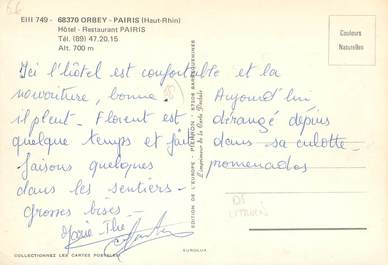 68
EIII 749 - 68370 ORBEY - PAIRIS (Haut-Rhin)
Hôtel - Restaurant PAIRIS
Tél. (89) 47.20.15
Alt. 700 m
Couleurs
Naturelles
Ici l'hôtel est confortable et la
nourriture, bonne. Aujourd'hui
il pleut. Florent est dérangé depuis
quelque temps et fait dans sa culotte.
faisons quelques promenades
dans les sentiers.
Grosses bises -
Marie Thé
EDITION DE L'EUROPE - PIERRON - 57206 SARREGUEMINES
L'imprimeur de la Carte Postale
COLLECTIONNEZ LES CARTES POSTALES
EUROLUX